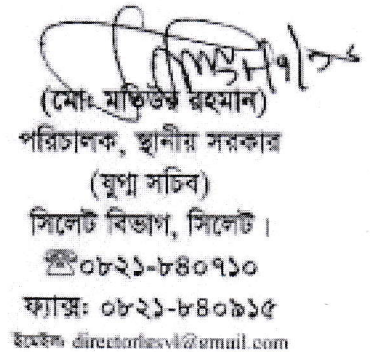 (মোঃ মতিউর রহমান)
পরিচালক, স্থানীয় সরকার
(যুগ্ম সচিব)
সিলেট বিভাগ, সিলেট।
☎০৮২১-৮৪০৭১০
ফ্যাক্সঃ ০৮২১-৮৪০৯১৫
ইমেইলঃ directorlgsyl@gmail.com